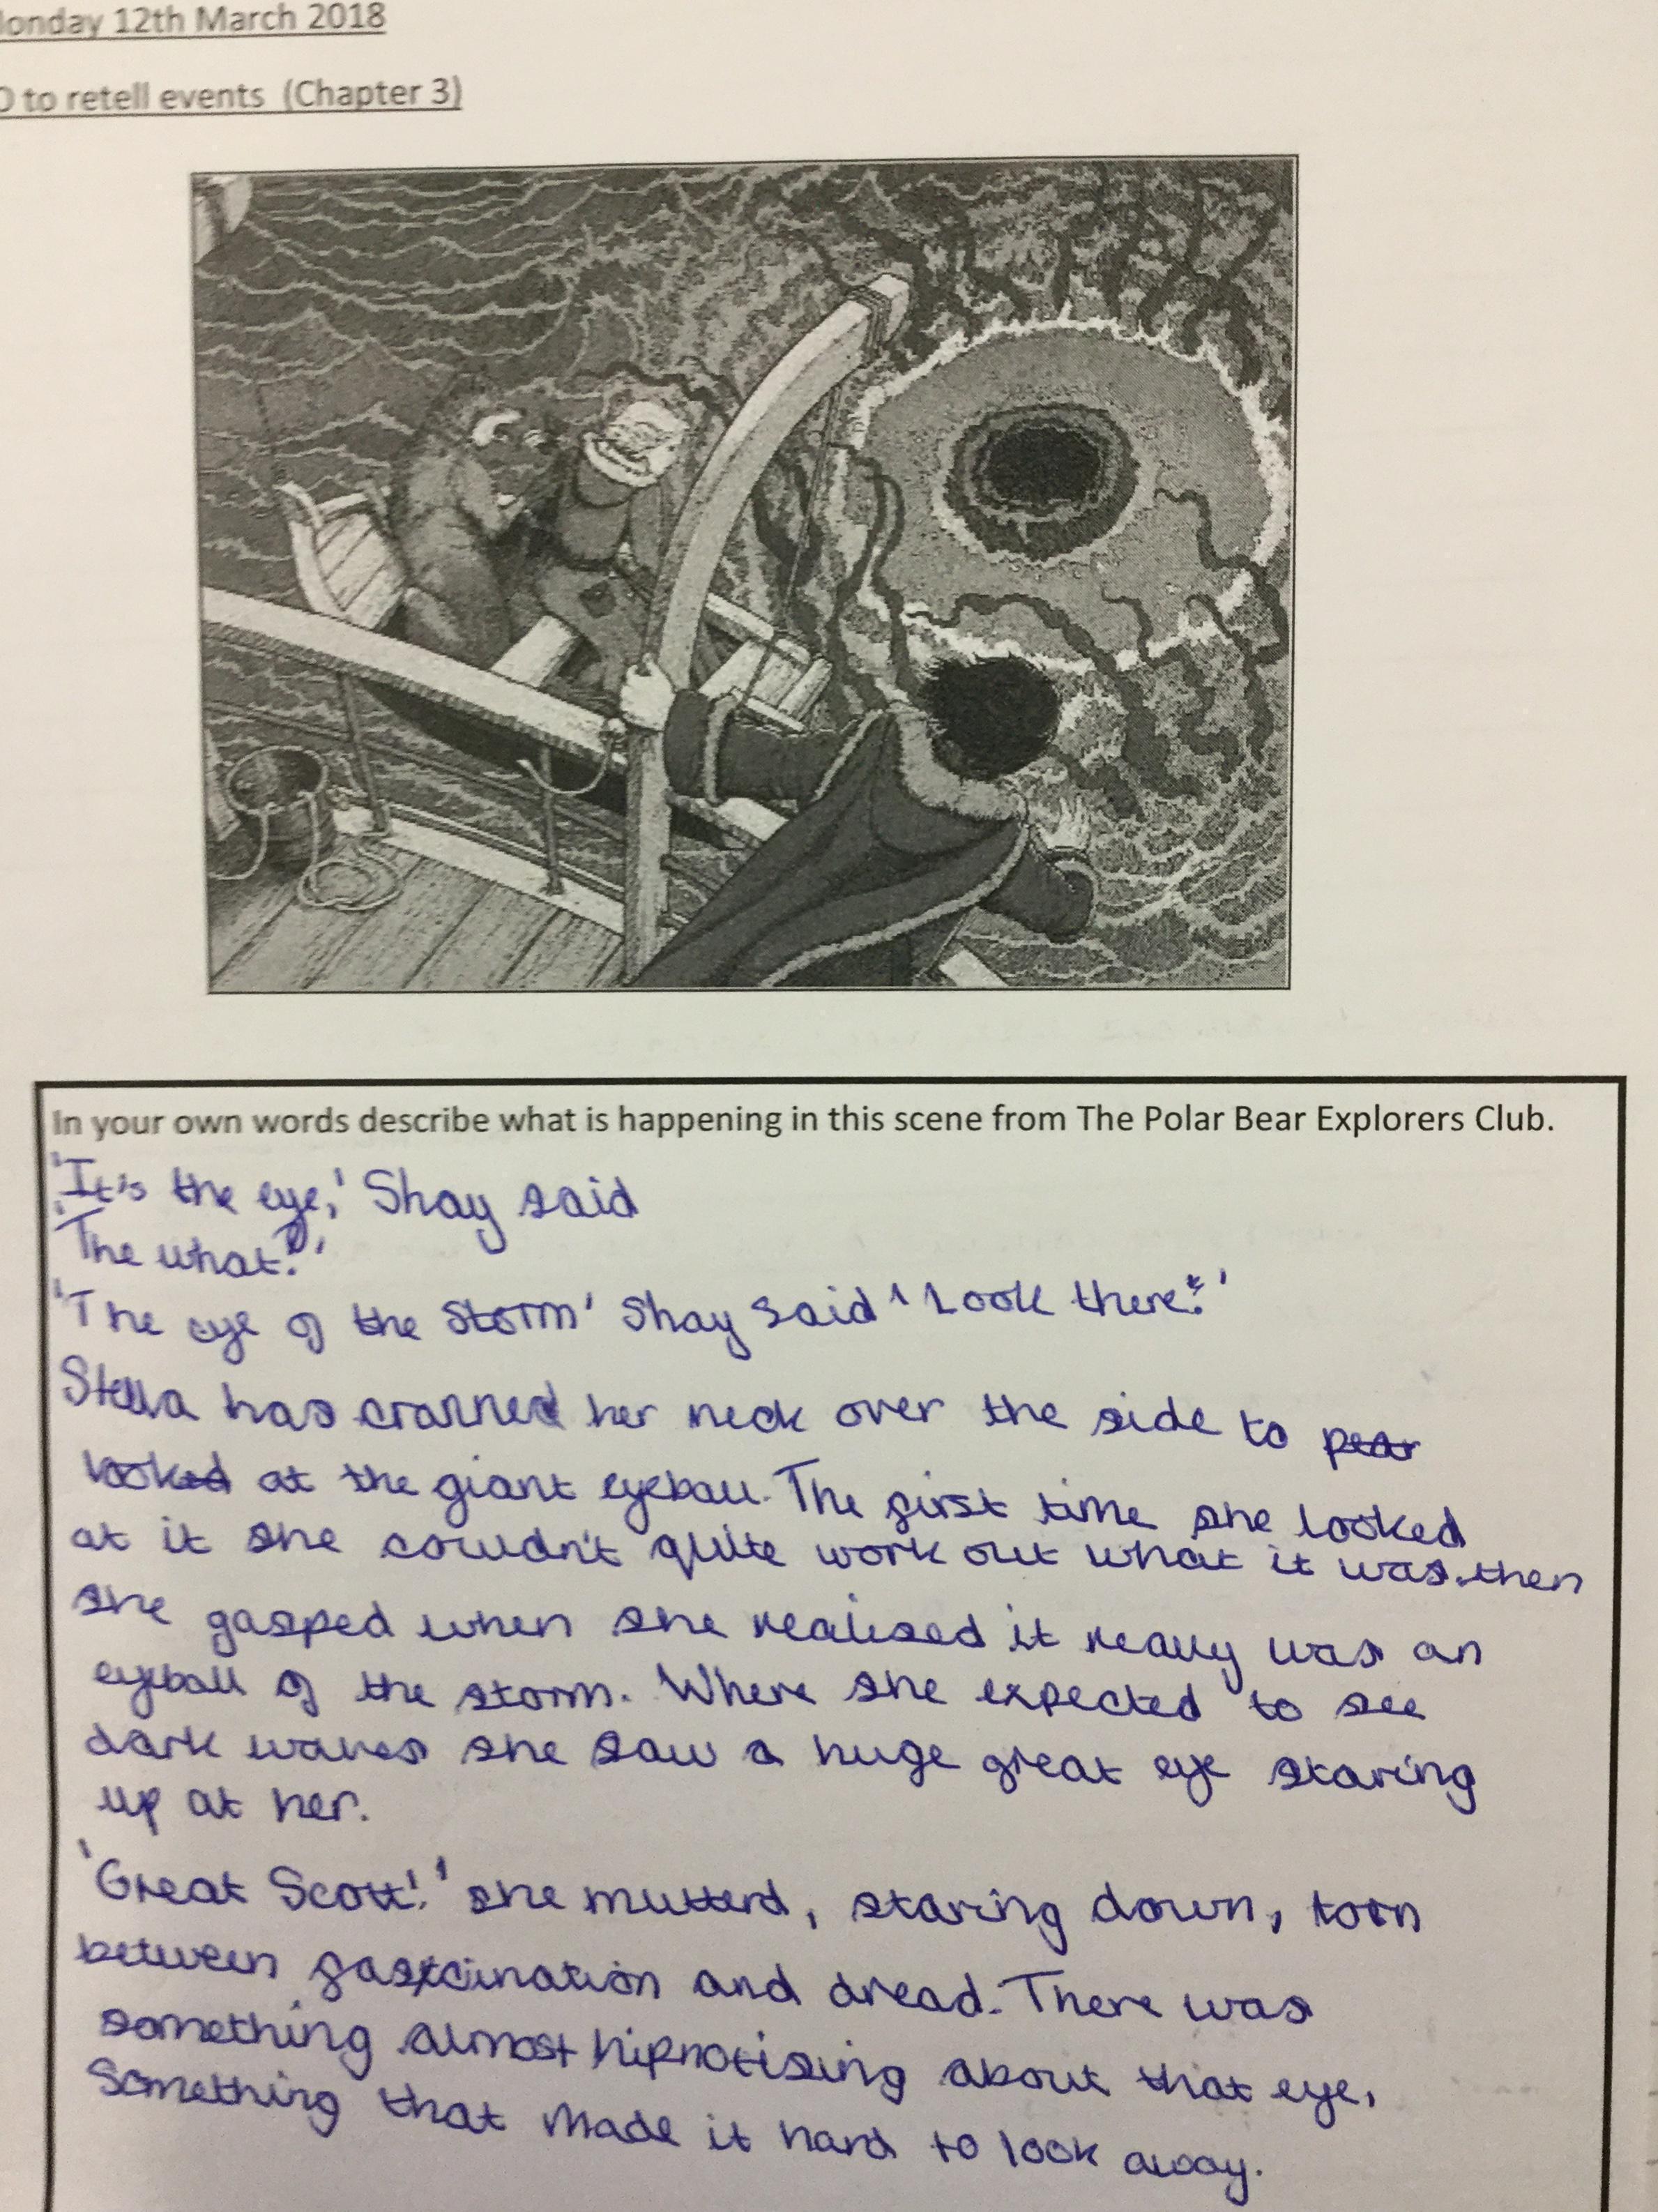 onday 12th March 2018
O to retell events (Chapter 3)
In your own words describe what is happening in this scene from The Polar Bear Explorers Club.
'It's the eye,' Shay said
'The what?'
'The eye of the storm' Shay said 'Look there!'
Stella has cranned her neck over the side to pear
looked at the giant eyeball. The first time she looked
at it she couldn't quite work out what it was. then
she gasped when she realised it really was an
eyeball of the storm. Where she expected to see
dark waves she saw a huge great eye staring
up at her.
'Great Scott!' she mutterd, staring down, torn
between fascination and dread. There was
something almost hipnotising about that eye,
Something that made it hard to look away.